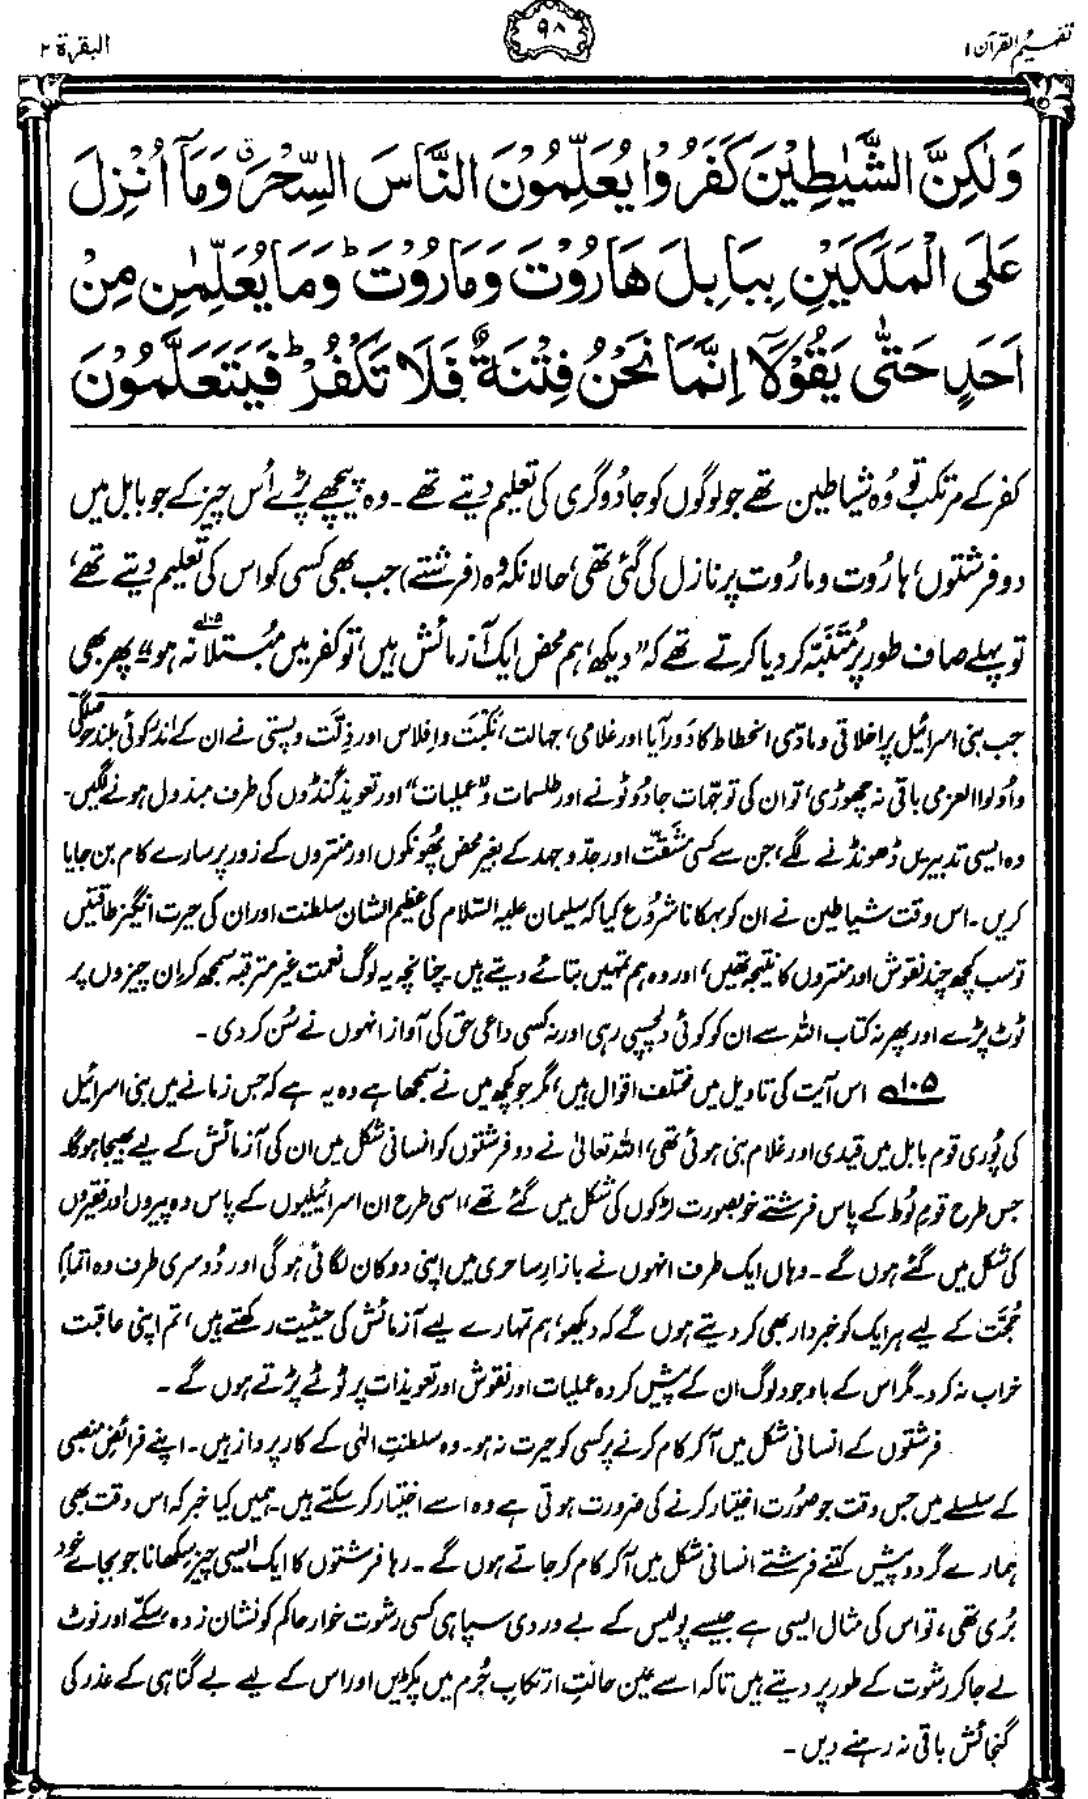 تفہیم القرآن ۱
۹۸
البقرۃ ۲
وَلٰكِنَّ الشَّيٰطِيْنَ كَفَرُوْا يُعَلِّمُوْنَ النَّاسَ السِّحْرَ ۗ وَمَآ اُنْزِلَ
عَلَى الْمَلَكَيْنِ بِبَابِلَ هَارُوْتَ وَمَارُوْتَ ؕ وَمَا يُعَلِّمٰنِ مِنْ
اَحَدٍ حَتّٰى يَقُوْلَآ اِنَّمَا نَحْنُ فِتْنَةٌ فَلَا تَكْفُرْ ؕ فَيَتَعَلَّمُوْنَ
کفر کے مرتکب تو وُہ شیاطین تھے جو لوگوں کو جادُوگری کی تعلیم دیتے تھے ۔ وہ پیچھے پڑے اُس چیز کے جو بابل میں
دو فرشتوں، ہارُوت و مارُوت پر نازل کی گئی تھی، حالانکہ وہ (فرشتے) جب بھی کسی کو اس کی تعلیم دیتے تھے،
تو پہلے صاف طور پر مُتَنَبِّہ کر دیا کرتے تھے کہ ”دیکھ، ہم محض ایک آزمائش ہیں، تو کفر میں مُبتلا نہ ہو“ ۱۰۵ پھر بھی
جب بنی اسرائیل پر اخلاقی و مادّی انحطاط کا دَور آیا اور غلامی، جہالت، نَکبَت و اِفلاس اور ذِلّت و پستی نے ان کے اندر کوئی بلند حوصلگی
و اُولوا العزمی باقی نہ چھوڑی، تو ان کی توجّہات جادُو ٹونے اور طلسمات و ”عملیات“ اور تعویذ گنڈوں کی طرف مبذول ہونے لگیں۔
وہ ایسی تدبیریں ڈھونڈنے لگے، جن سے کسی مشَقّت اور جدّوجہد کے بغیر محض پھُونکوں اور منتروں کے زور پر سارے کام بن جایا
کریں ۔ اس وقت شیاطین نے ان کو بہکانا شرُوع کیا کہ سلیمان علیہ السّلام کی عظیم الشان سلطنت اور ان کی حیرت انگیز طاقتیں
تو سب کچھ چند نقوش اور منتروں کا نتیجہ تھیں، اور وہ ہم تمہیں بتائے دیتے ہیں۔ چنانچہ یہ لوگ نعمت غیر مترقبہ سمجھ کر اِن چیزوں پر
ٹوٹ پڑے اور پھر نہ کتاب اللہ سے ان کو کوئی دلچسپی رہی اور نہ کسی داعی حق کی آواز انہوں نے سُن کر دی ۔
۱۰۵ اس آیت کی تاویل میں مختلف اقوال ہیں، مگر جو کچھ میں نے سمجھا ہے وہ یہ ہے کہ جس زمانے میں بنی اسرائیل
کی پُوری قوم بابل میں قیدی اور غلام بنی ہوئی تھی، اللہ تعالیٰ نے دو فرشتوں کو انسانی شکل میں ان کی آزمائش کے لیے بھیجا ہوگا۔
جس طرح قومِ لُوط کے پاس فرشتے خوبصورت لڑکوں کی شکل میں گئے تھے، اسی طرح ان اسرائیلیوں کے پاس وہ پیروں اور فقیروں
کی شکل میں گئے ہوں گے ۔ وہاں ایک طرف انہوں نے بازارِ ساحری میں اپنی دوکان لگائی ہو گی اور دُوسری طرف وہ اتمامِ
حُجّت کے لیے ہر ایک کو خبردار بھی کر دیتے ہوں گے کہ دیکھو، ہم تمہارے لیے آزمائش کی حیثیت رکھتے ہیں، تم اپنی عاقبت
خراب نہ کرو۔ مگر اس کے باوجود لوگ ان کے پیش کردہ عملیات اور نقوش اور تعویذات پر ٹوٹے پڑتے ہوں گے ۔
فرشتوں کے انسانی شکل میں آ کر کام کرنے پر کسی کو حیرت نہ ہو۔ وہ سلطنتِ الٰہی کے کار پرداز ہیں ۔ اپنے فرائضِ منصبی
کے سلسلے میں جس وقت جو صُورت اختیار کرنے کی ضرورت ہوتی ہے وہ اسے اختیار کر سکتے ہیں۔ ہمیں کیا خبر کہ اس وقت بھی
ہمارے گرد و پیش کتنے فرشتے انسانی شکل میں آ کر کام کر جاتے ہوں گے ۔ رہا فرشتوں کا ایک ایسی چیز سکھانا جو بجائے خود
بُری تھی، تو اس کی مثال ایسی ہے جیسے پولیس کے بے وردی سپاہی کسی رشوت خوار حاکم کو نشان زدہ سکّے اور نوٹ
لے جا کر رشوت کے طور پر دیتے ہیں تاکہ اسے عین حالتِ ارتکابِ جُرم میں پکڑیں اور اس کے لیے بے گناہی کے عذر کی
گنجائش باقی نہ رہنے دیں ۔